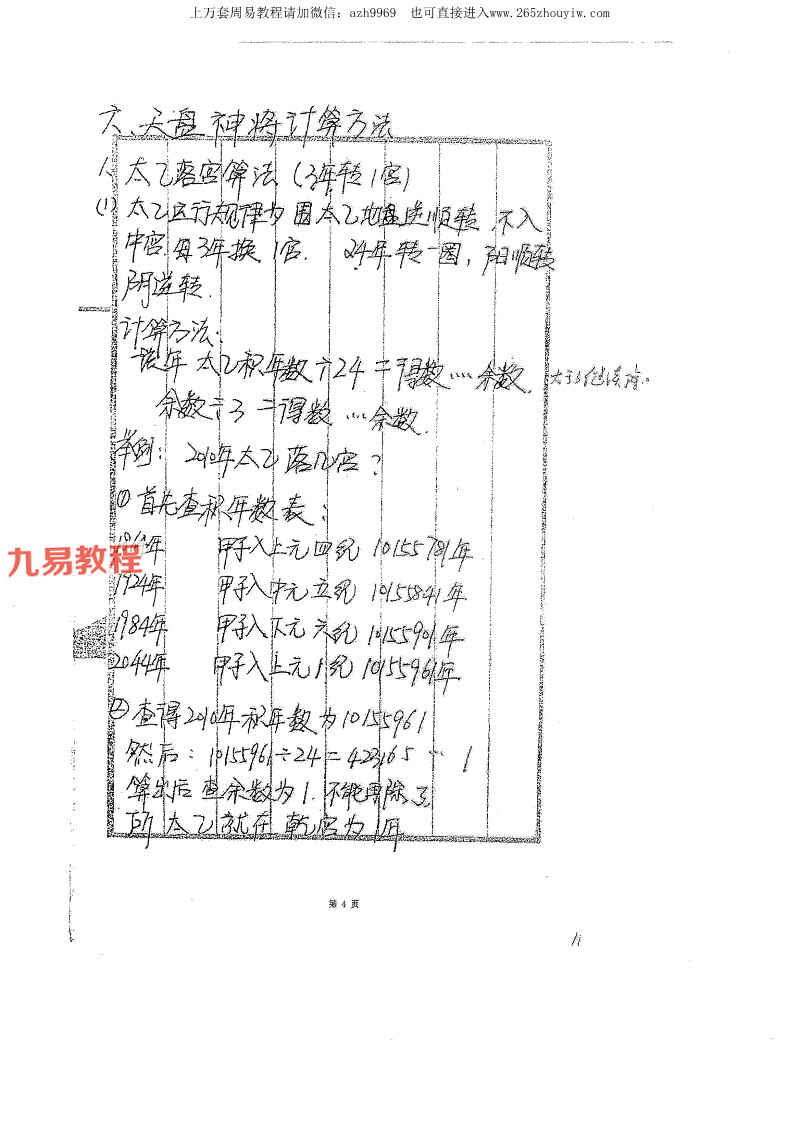 上万套周易教程请加微信：azh9969 也可直接进入www.265zhouyiw.com
六、天盘神将计算方法
1、太乙落宫算法（3年转1宫）
(1) 太乙运行规律为围太乙地盘逆顺转，不入
中宫，每3年换1宫. 24年转一圈，阳顺转
阴逆转.
计算方法：
该年太乙积年数÷24＝得数……余数. 大于3继续除。
余数÷3＝得数…余数.
举例：2010年太乙落几宫？
① 首先查积年数表：
年 甲子入上元四纪 10155781年
九易教程
1924年 甲子入中元五纪 10155841年
1984年 甲子入下元六纪 10155901年
2044年 甲子入上元1纪 10155961年
② 查得2010年积年数为10155961
然后：10155961÷24＝423165…1
算出后查余数为1.不能再除3
所太乙就在乾宫为1年
第 4 页